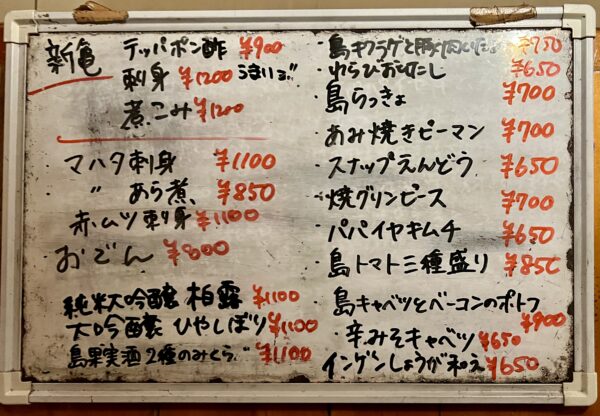 新亀 テッパポン酢 ¥900
刺身 ¥1200 うまいョ!!
煮こみ ¥1200
マハタ刺身 ¥1100
〃 あら煮 ¥850
赤ムツ刺身 ¥1100
おでん ¥800
純米大吟醸 柏露 ¥1100
大吟醸 ひやしぼり ¥1100
島果実酒2種のみくらべ ¥1100
・島キクラゲと豚肉いため ¥750
・わらびおひたし ¥650
・島らっきょ ¥700
・あみ焼きピーマン ¥700
・スナップえんどう ¥650
・焼グリンピース ¥700
・パパイヤキムチ ¥650
・島トマト三種盛り ¥850
・島キャベツとベーコンのポトフ ¥900
・辛みそキャベツ ¥650
インゲンしょうが和え ¥650